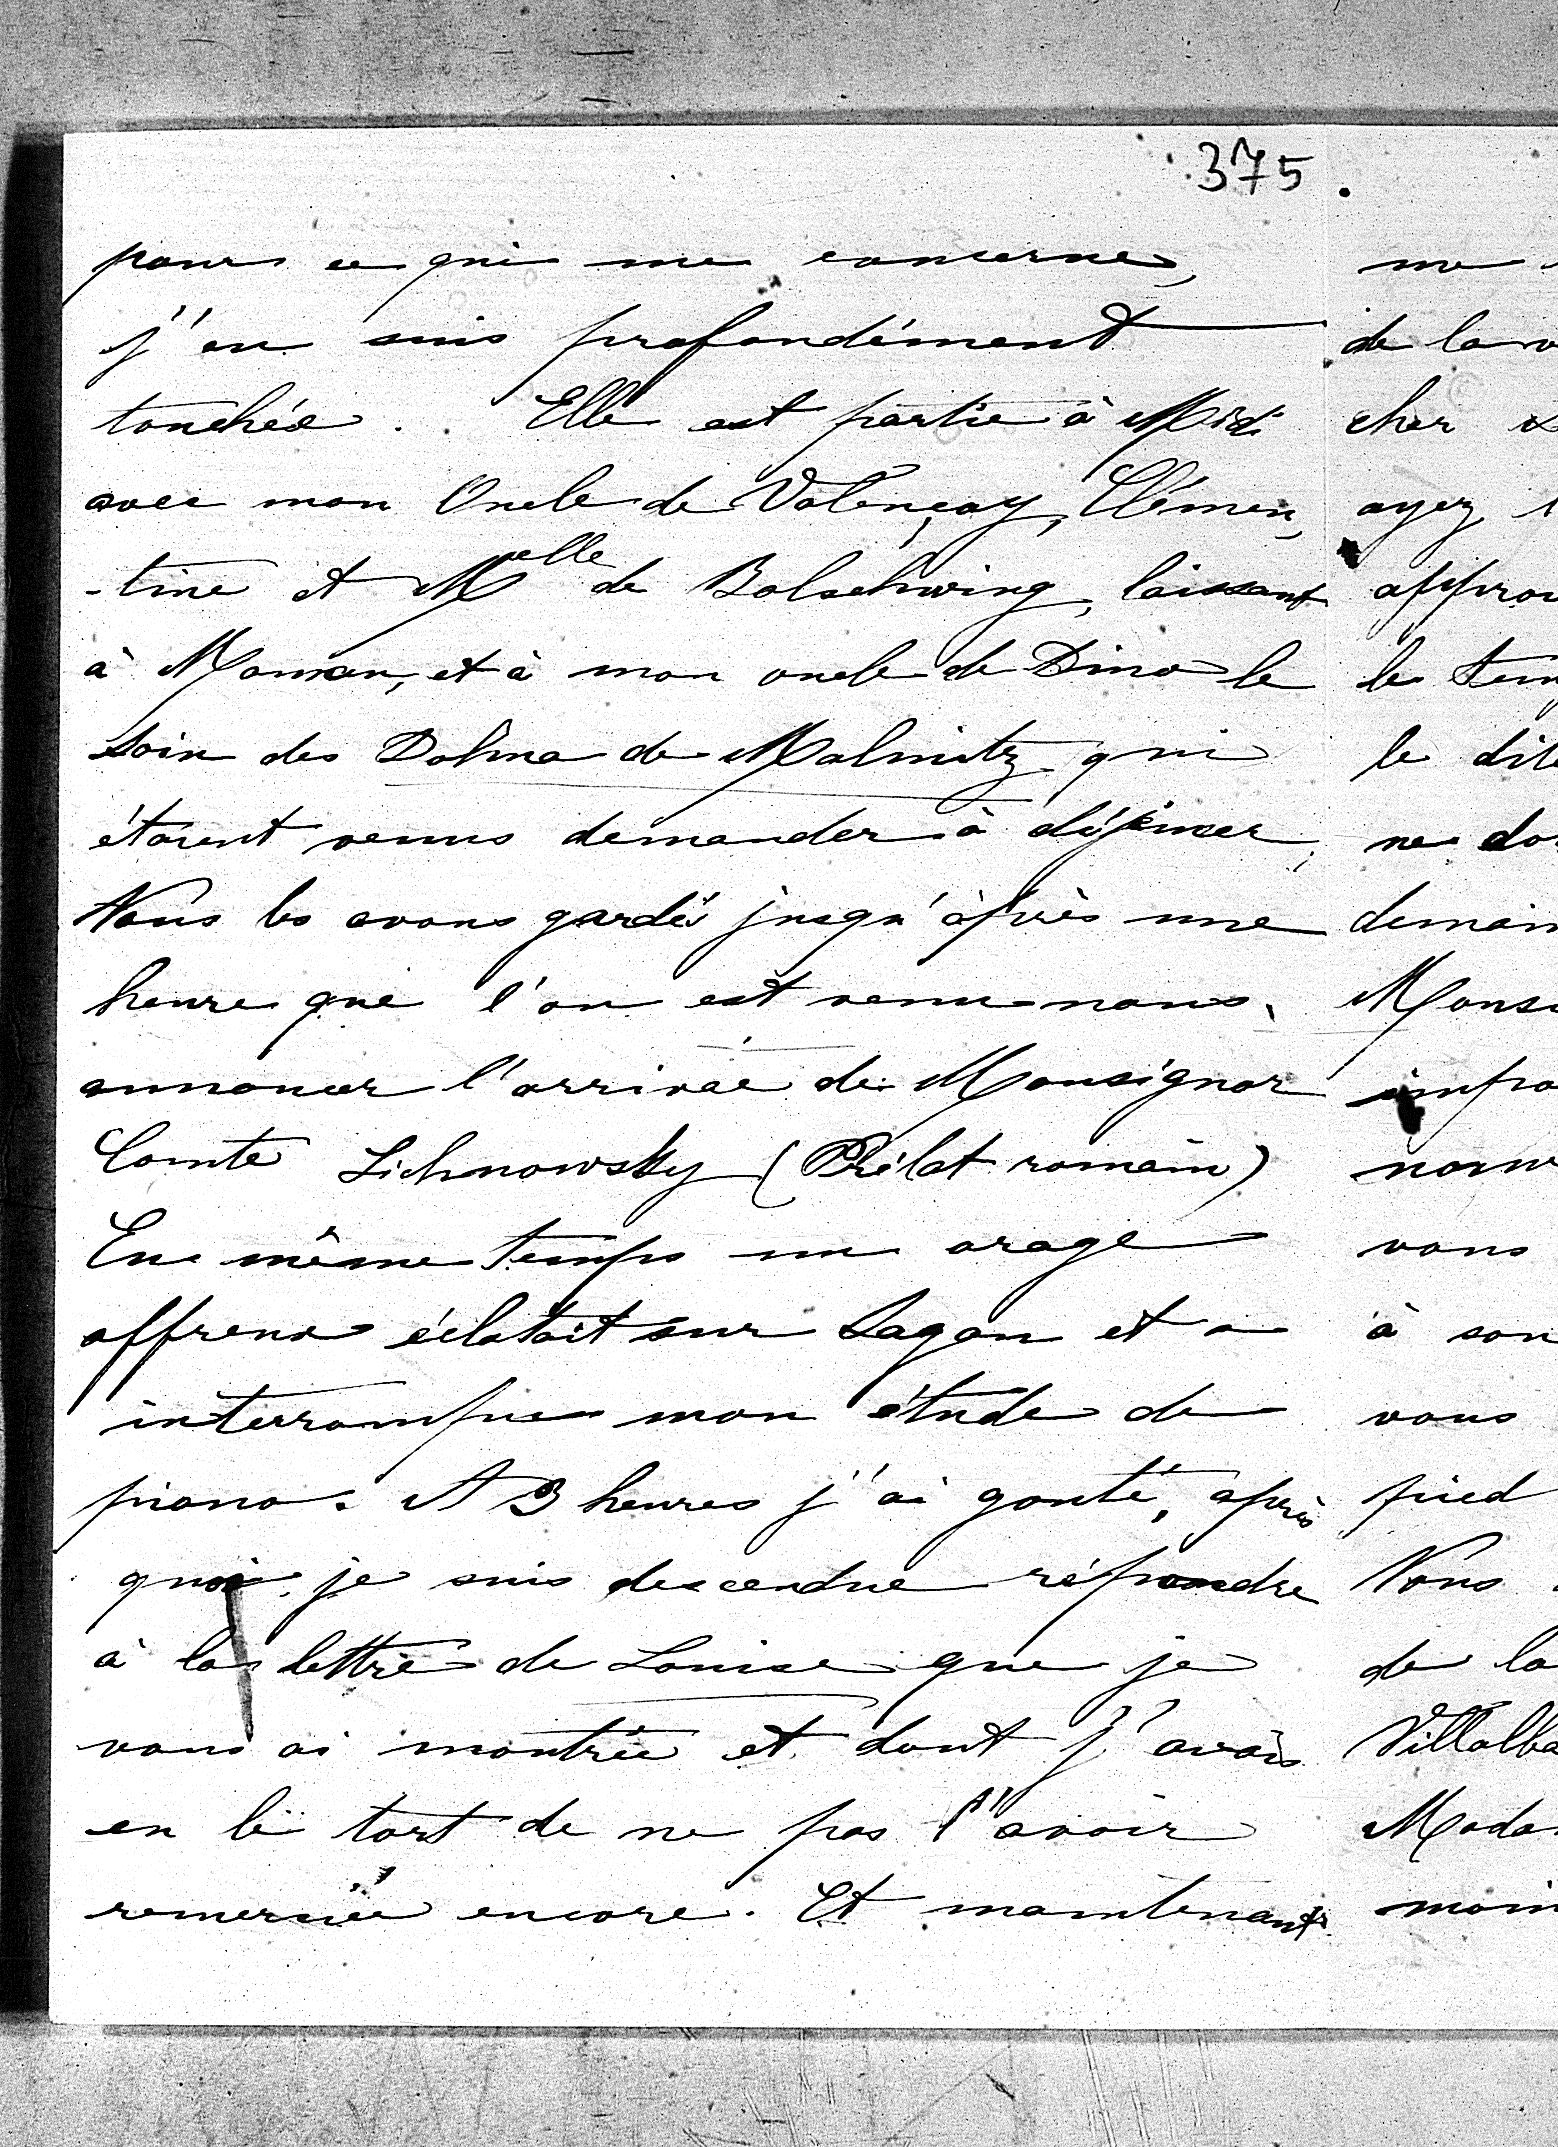 375.
pour ce qui me concerne,
j'en suis profondément
touchée. Elle est partie à Midi
avec mon Oncle de Valençay, Clémen,
-tine et Melle de Bolschwing, laissant
à Maman, et à mon oncle de Dino le
soin des Dohna de Malmitz qui
étaient venus demander à déjeuner,
Nous les avons gardés jusqu'après une
heure que l'on est venu nous
annoncer l'arrivée de Monsignor
Comte Lichnowsky (Prélat romain)
En même temps un orage
affreux éclatait sur Sagan et a
interrompu mon étude de
piano. A 3 heures j'ai gouté, après
quoi, je suis descendue répondre
à la lettre de Louise que je
vous ai montrée et dont j'avais
eu le tort de ne pas l'avoir
remerciée encore. Et maintenant
me
de la
cher
ayez
approu
le tem
le dit
ne do
demain
Monsi
impo
nouv
vous
à son
vous
pied
Vous
de la
Villalba
Mada
moin